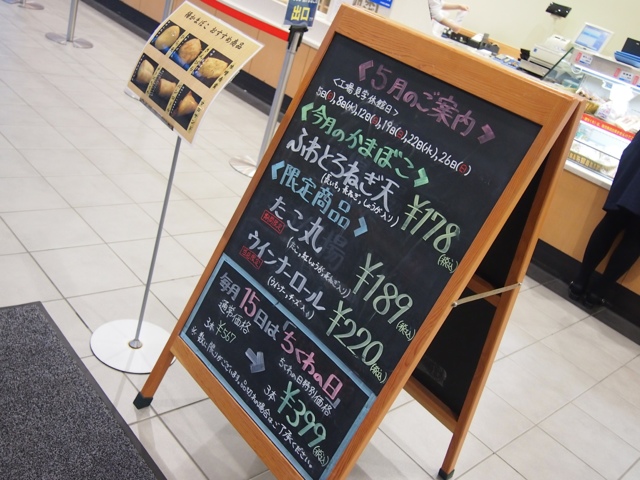 出口
揚かまぼこ おすすめ商品
《5月のご案内》
<工場見学休館日>
5日(日), 8日(水), 12日(日), 19日(日), 22日(水), 26日(日)
《今月のかまぼこ》
ふわとろねぎ天 ¥178(税込)
《限定商品》
たこ丸 ¥189(税込)
ウインナーロール ¥220(税込)
(ウインナー,チーズ入り)
毎月15日は「ちくわの日」
通常価格 ちくわの日特別価格
3本 ¥567 3本 ¥399(税込)